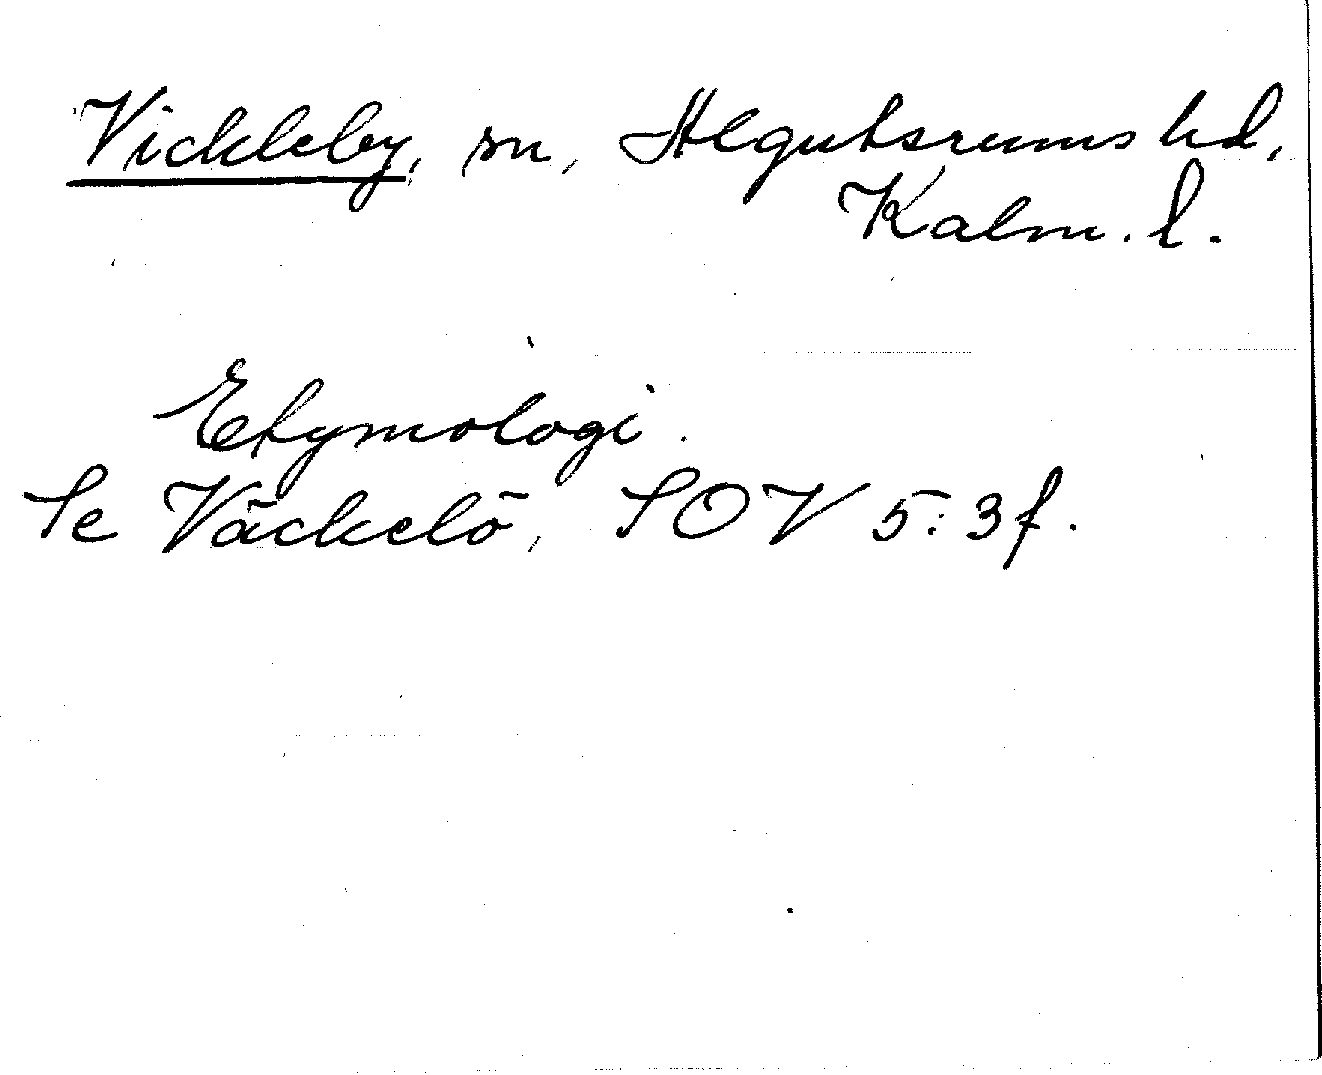 Vickleby, sn, Algutsrums hd,
Kalm. l.
Etymologi.
Se Väckelö, SOV 5:3f.